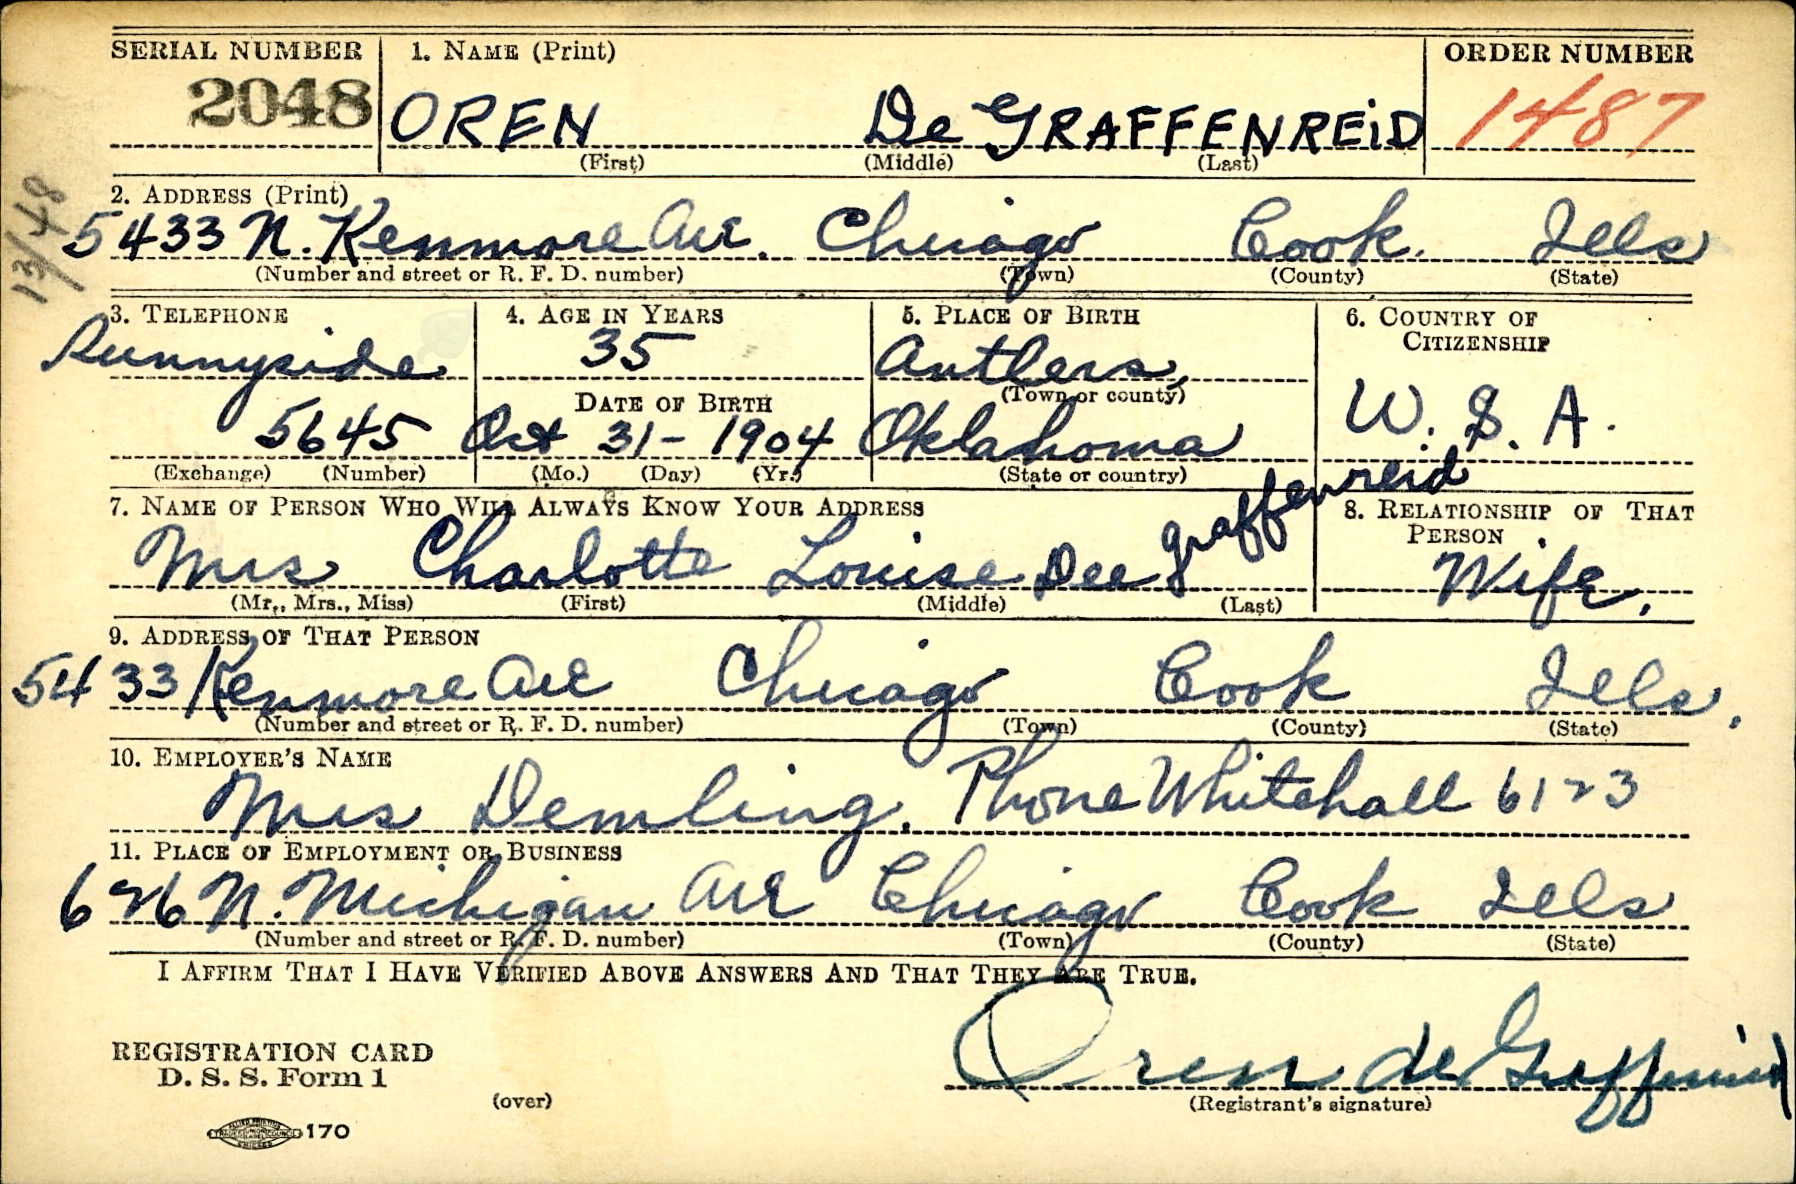 SERIAL NUMBER 1. NAME (Print) ORDER NUMBER
2048 OREN De GRAFFENREID 1487
(First) (Middle) (Last)
13/48
2. ADDRESS (Print)
5433 N. Kenmore Ave. Chicago Cook. Ills
(Number and street or R. F. D. number) (Town) (County) (State)
3. TELEPHONE 4. AGE IN YEARS 5. PLACE OF BIRTH 6. COUNTRY OF CITIZENSHIP
Sunnyside 35 Antlers,
DATE OF BIRTH (Town or county)
5645 Oct 31- 1904 Oklahoma U. S. A.
(Exchange) (Number) (Mo.) (Day) (Yr.) (State or country)
7. NAME OF PERSON WHO WILL ALWAYS KNOW YOUR ADDRESS 8. RELATIONSHIP OF THAT PERSON
Mrs Charlotte Louise Dee graffenreid Wife.
(Mr., Mrs., Miss) (First) (Middle) (Last)
9. ADDRESS OF THAT PERSON
5433 Kenmore Ave Chicago Cook Ills.
(Number and street or R. F. D. number) (Town) (County) (State)
10. EMPLOYER'S NAME
Mrs Demling. Phone Whitehall 6123
11. PLACE OF EMPLOYMENT OR BUSINESS
626 N. Michigan Ave Chicago Cook Ills
(Number and street or R. F. D. number) (Town) (County) (State)
I AFFIRM THAT I HAVE VERIFIED ABOVE ANSWERS AND THAT THEY ARE TRUE.
Oren de Graffenreid
REGISTRATION CARD
D. S. S. Form 1
(over) (Registrant's signature)
170